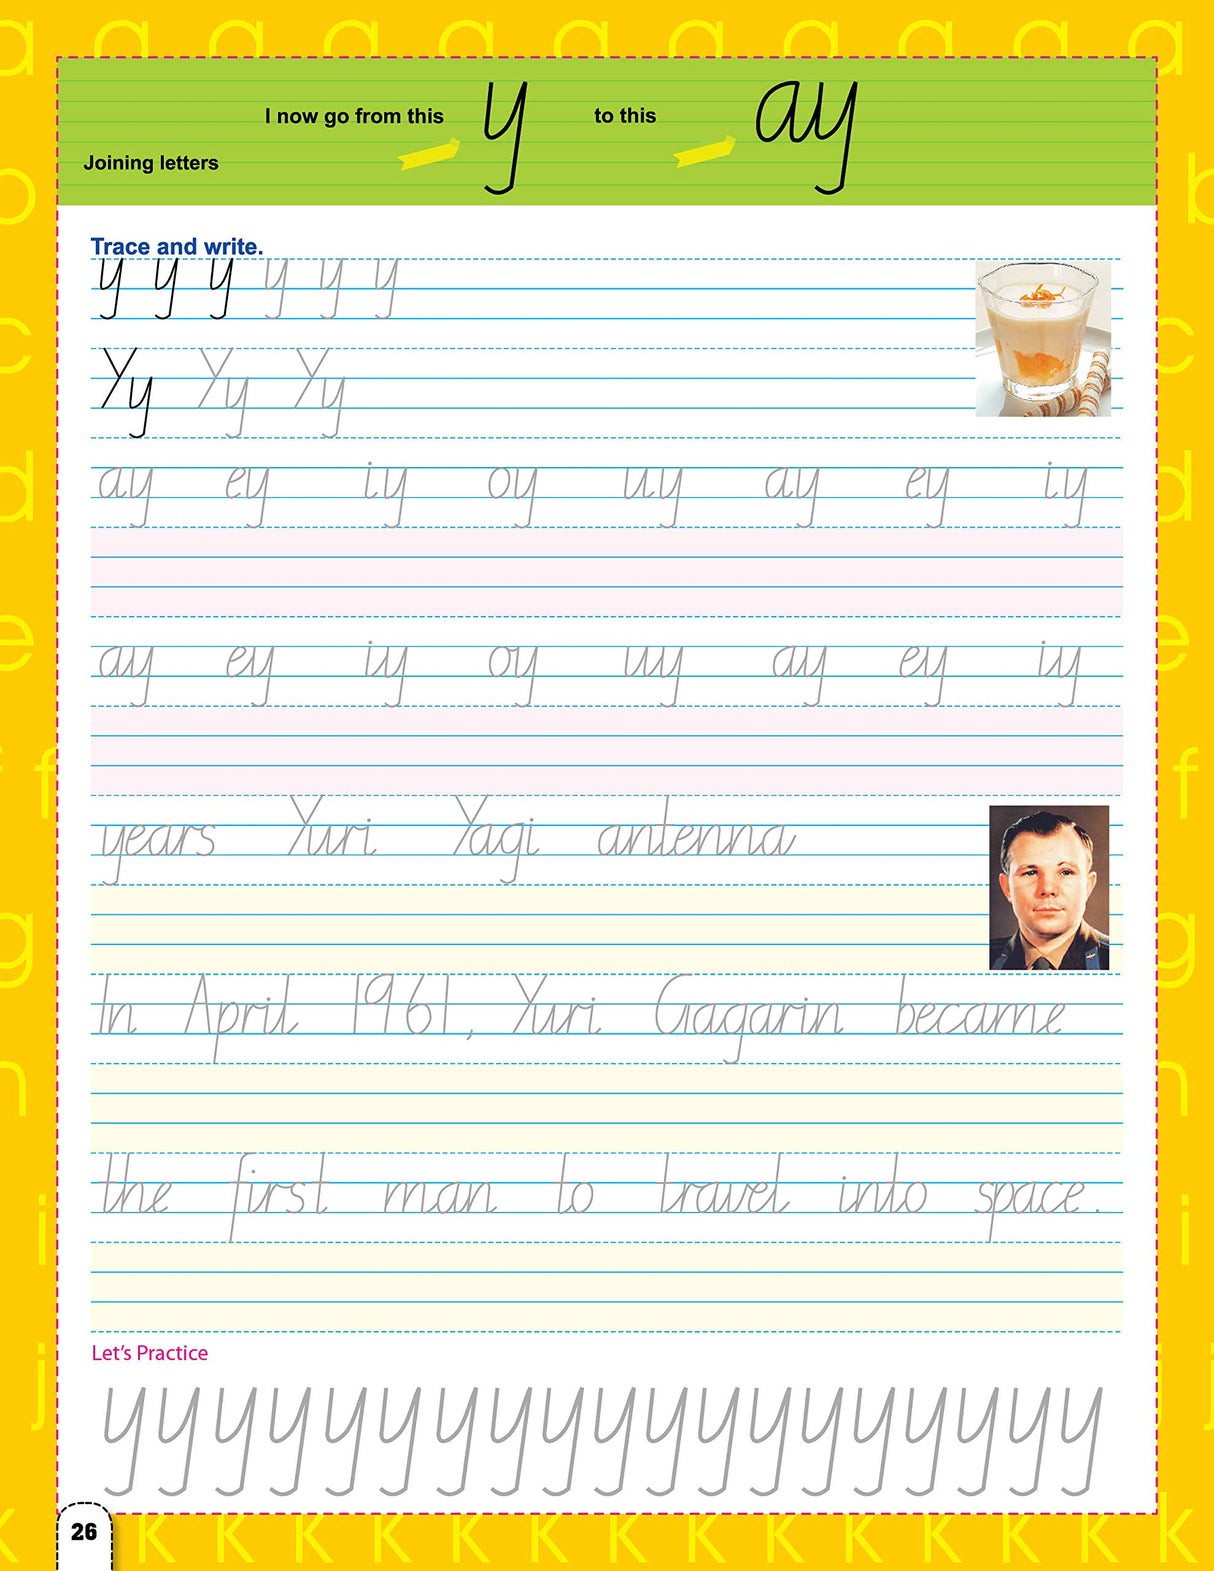 I now go from this y to this ay
Joining letters
Trace and write.
y y y y y y
Yy Yy Yy
ay ey iy oy uy ay ey iy
ay ey iy oy uy ay ey iy
years Yuri Yagi antenna
In April 1961, Yuri Gagarin became
the first man to travel into space.
Let's Practice
y y y y y y y y y y y y y y y y y y y
26